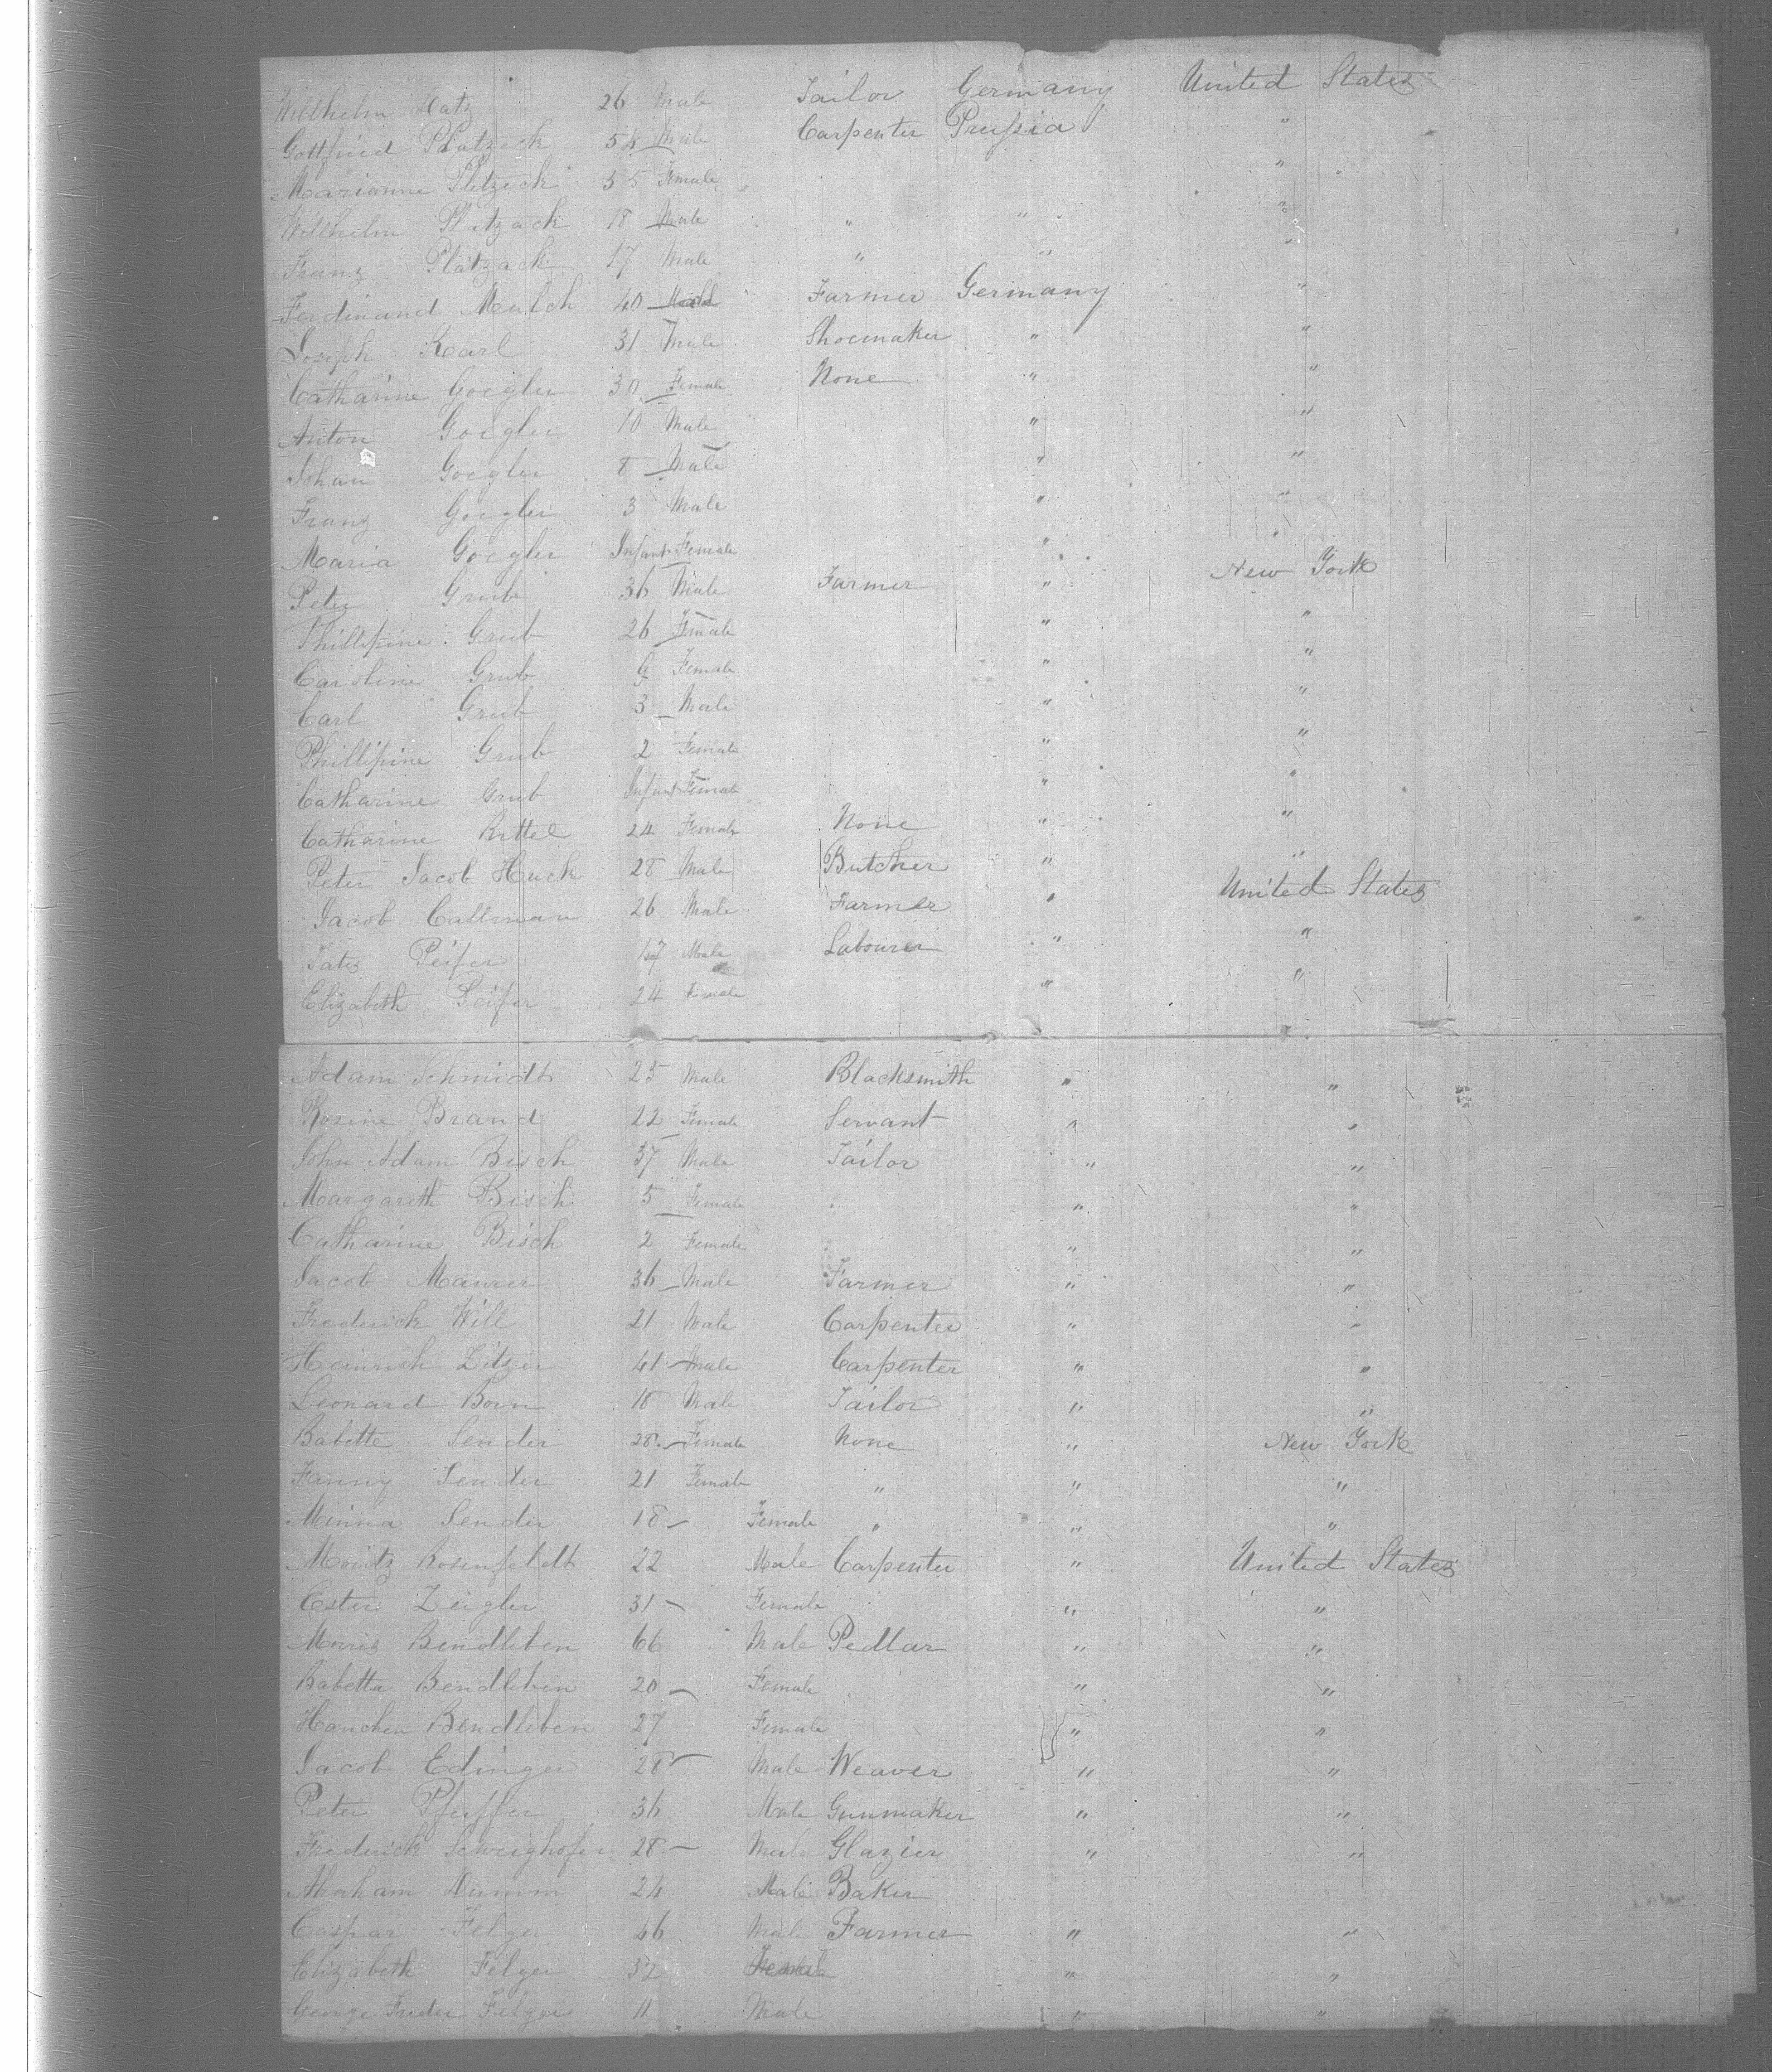 Willhelm Katz 26 Male Tailor Germany United States
Gottfried Platzeck 54 Male Carpenter Prussia "
Marianne Pletzeck 35 Female "
Wilhelm Platzack 18 Male " " "
Franz Platzack 17 Male " " "
Ferdinand Mulch 40 Male Farmer Germany "
Joseph Karl 31 Male Shoemaker " "
Catharine Goegler 30 Female None " "
Anton Goegler 10 Male " "
Johan Goegler 8 Male " "
Franz Goegler 3 Male " "
Maria Goegler Infant Female " "
Peter Grub 36 Male Farmer " New York
Phillipine Grub 26 Female " "
Caroline Grub Female " "
Carl Grub 3 Male " "
Phillipine Grub 2 Female " "
Catharine Grub Infant Female " "
Catharine Kittel 24 Female None " "
Peter Jacob Huck 28 Male Butcher " "
Jacob Callman 26 Male Farmer " United States
Peifer 17 Male Labourer " "
Elizabeth Peifer 24 Female " "
Adam Schmidt 25 Male Blacksmith " "
Rosine Brand 22 Female Servant " "
John Adam Bisch 37 Male Tailor " "
Margareth Bisch 5 Female " "
Catharine Bisch 2 Female " "
Jacob Maurer 36 Male Farmer " "
Frederick Will 21 Male Carpenter " "
Heinrich Zitzer 41 Male Carpenter " "
Leonard Born 18 Male Tailor " "
Babette Sender 28 Female None " New York
Fanny Sender 21 Female " " "
Minna Sender 18 Female " " "
Moritz Rosenfeldt 22 Male Carpenter " United States
Ester Zeigler 31 Female " "
Morris Bendleben 66 Male Pedlar " "
Babetta Bendleben 20 Female " "
Hanchen Bendleben 27 Female " "
Jacob Edinger 28 Male Weaver " "
Peter Pfeiffer 36 Male Gunmaker " "
Frederick Schweighofer 28 Male Glazier " "
Abraham Dumm 24 Male Baker
Caspar Felger 46 Male Farmer " "
Elizabeth Felger 32 Female " "
George Freder Felger 11 Male " "